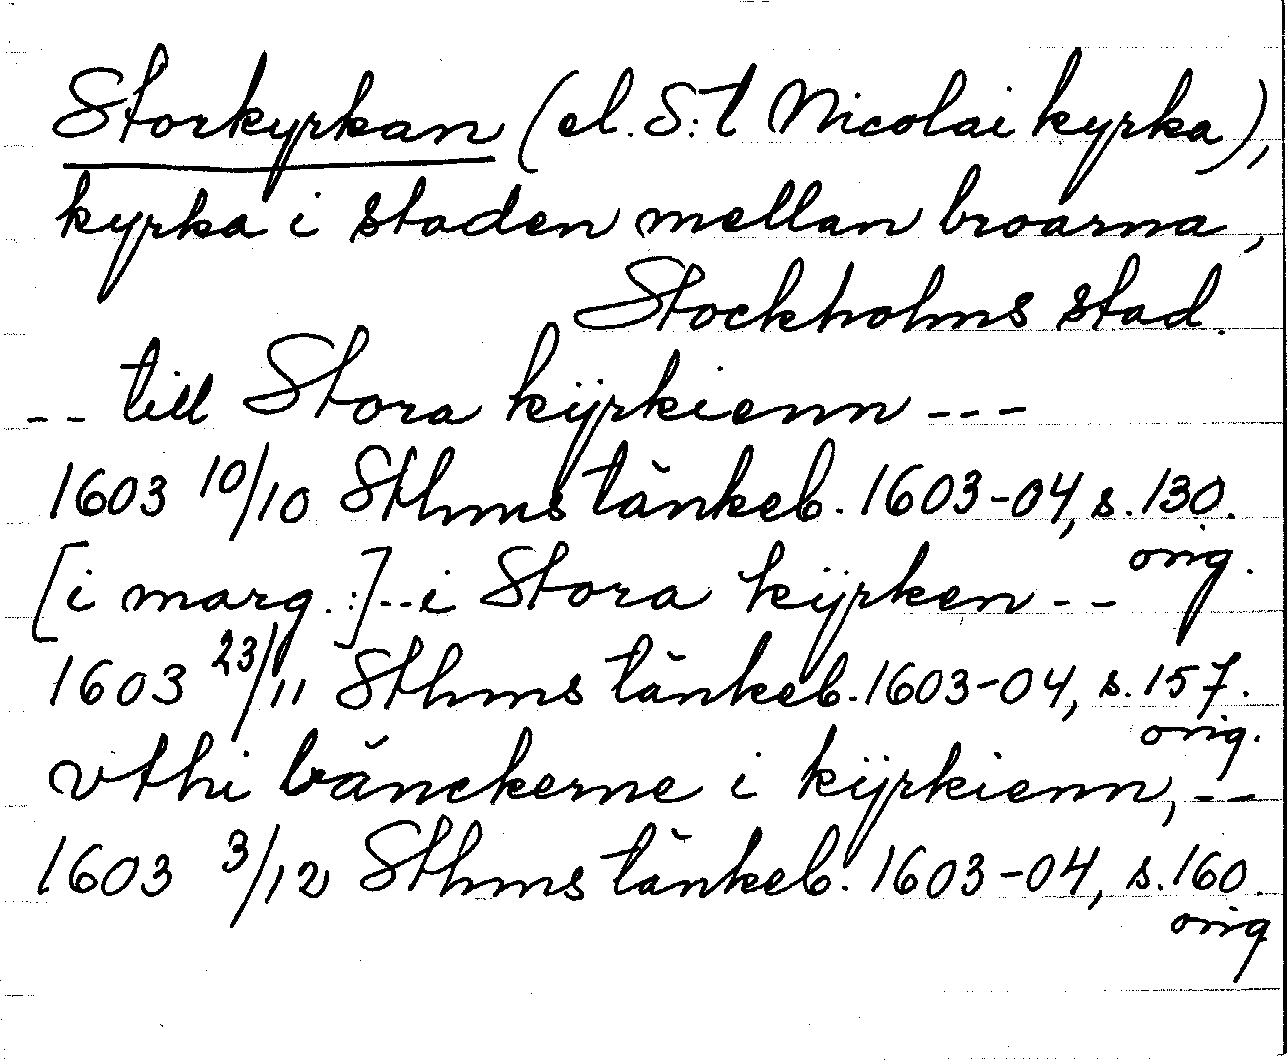 Storkyrkan (el. S:t Nicolai kyrka),
kyrka i staden mellan broarna,
Stockholms stad.
-- till Stora kÿrkienn ---
1603 10/10 Sthms tänkeb. 1603-04, s. 130.
orig.
[i marg.:]--i Stora kÿrken --
1603 23/11 Sthms tänkeb. 1603-04, s. 157.
orig.
vthi bänckerne i kÿrkienn, --
1603 3/12 Sthms tänkeb. 1603-04, s. 160.
orig